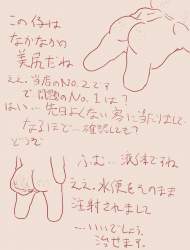 この侍は
なかなかの
美尻だね
ええ、当店のNo.2です
で 問題のNo.1は?
はい…先日よくない客に当たりまして
なるほど…確認しても?
どうぞ
ふむ…
ですね
ええ、水便をそのまま
注射されまして
…いいでしょう
治せます。